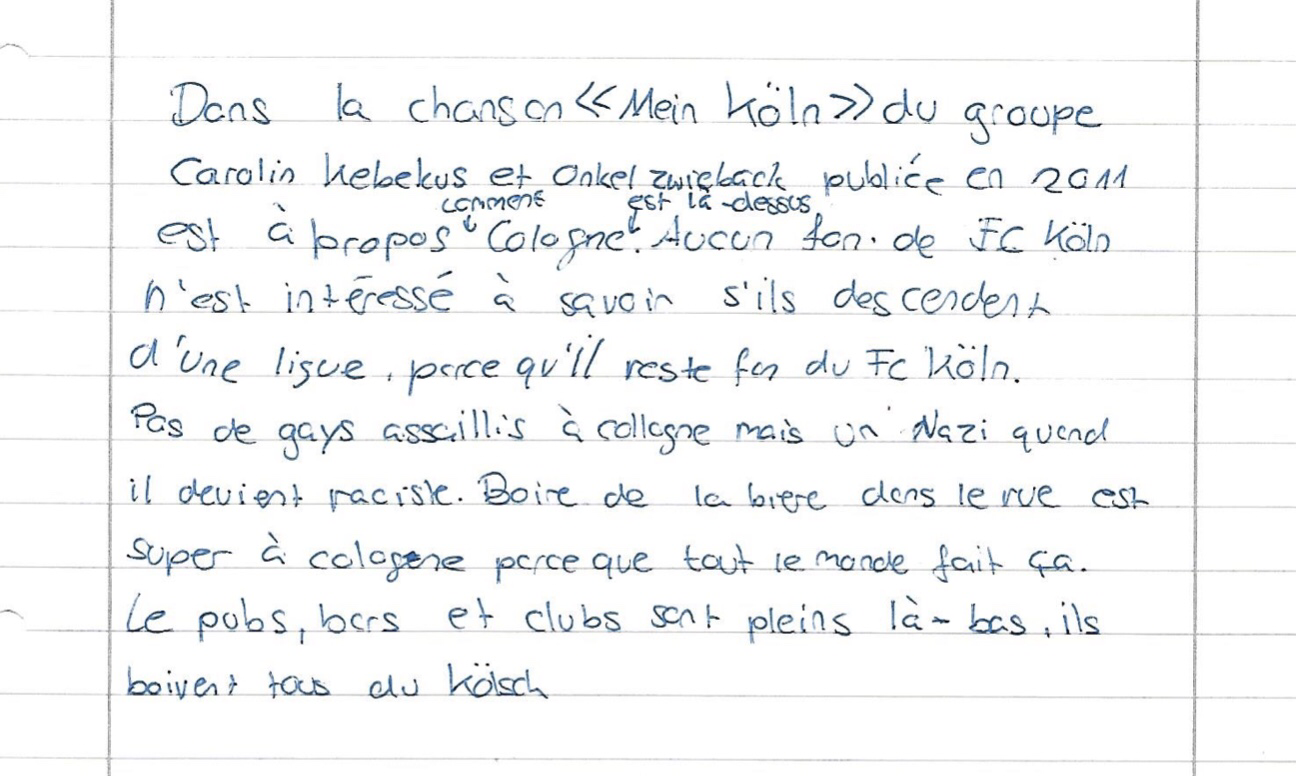 Dans la chanson «Mein Köln» du groupe
Carolin Kebekus et Onkel Zwieback publiée en 2011
comment est là-dessus
est à propos Cologne. Aucun fan. de FC Köln
n'est intéressé à savoir s'ils descendent
d'une ligue, parce qu'il reste fan du Fc Köln.
Pas de gays assaillis à collogne mais un Nazi quand
il devient raciste. Boire de la bière dans le rue est
super à cologene parce que tout le monde fait ça.
Le pubs, bars et clubs sont pleins là-bas, ils
boivent tous du Kölsch